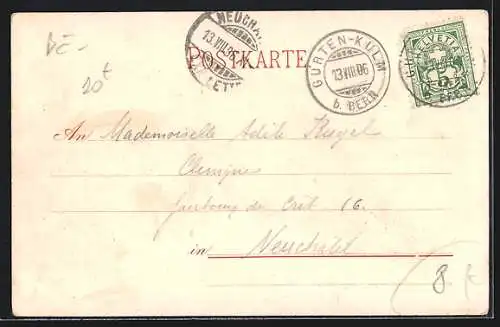 BE-
20t
NEUCHA
13.VIII.06
LETT
POSTKARTE
GURTEN-KULM
13.VIII.06
b. BERN
HELVETIA
An Mademoiselle Adèle Kugel
Clinique
faubourg du Crêt 16.
in Neuchâtel
8